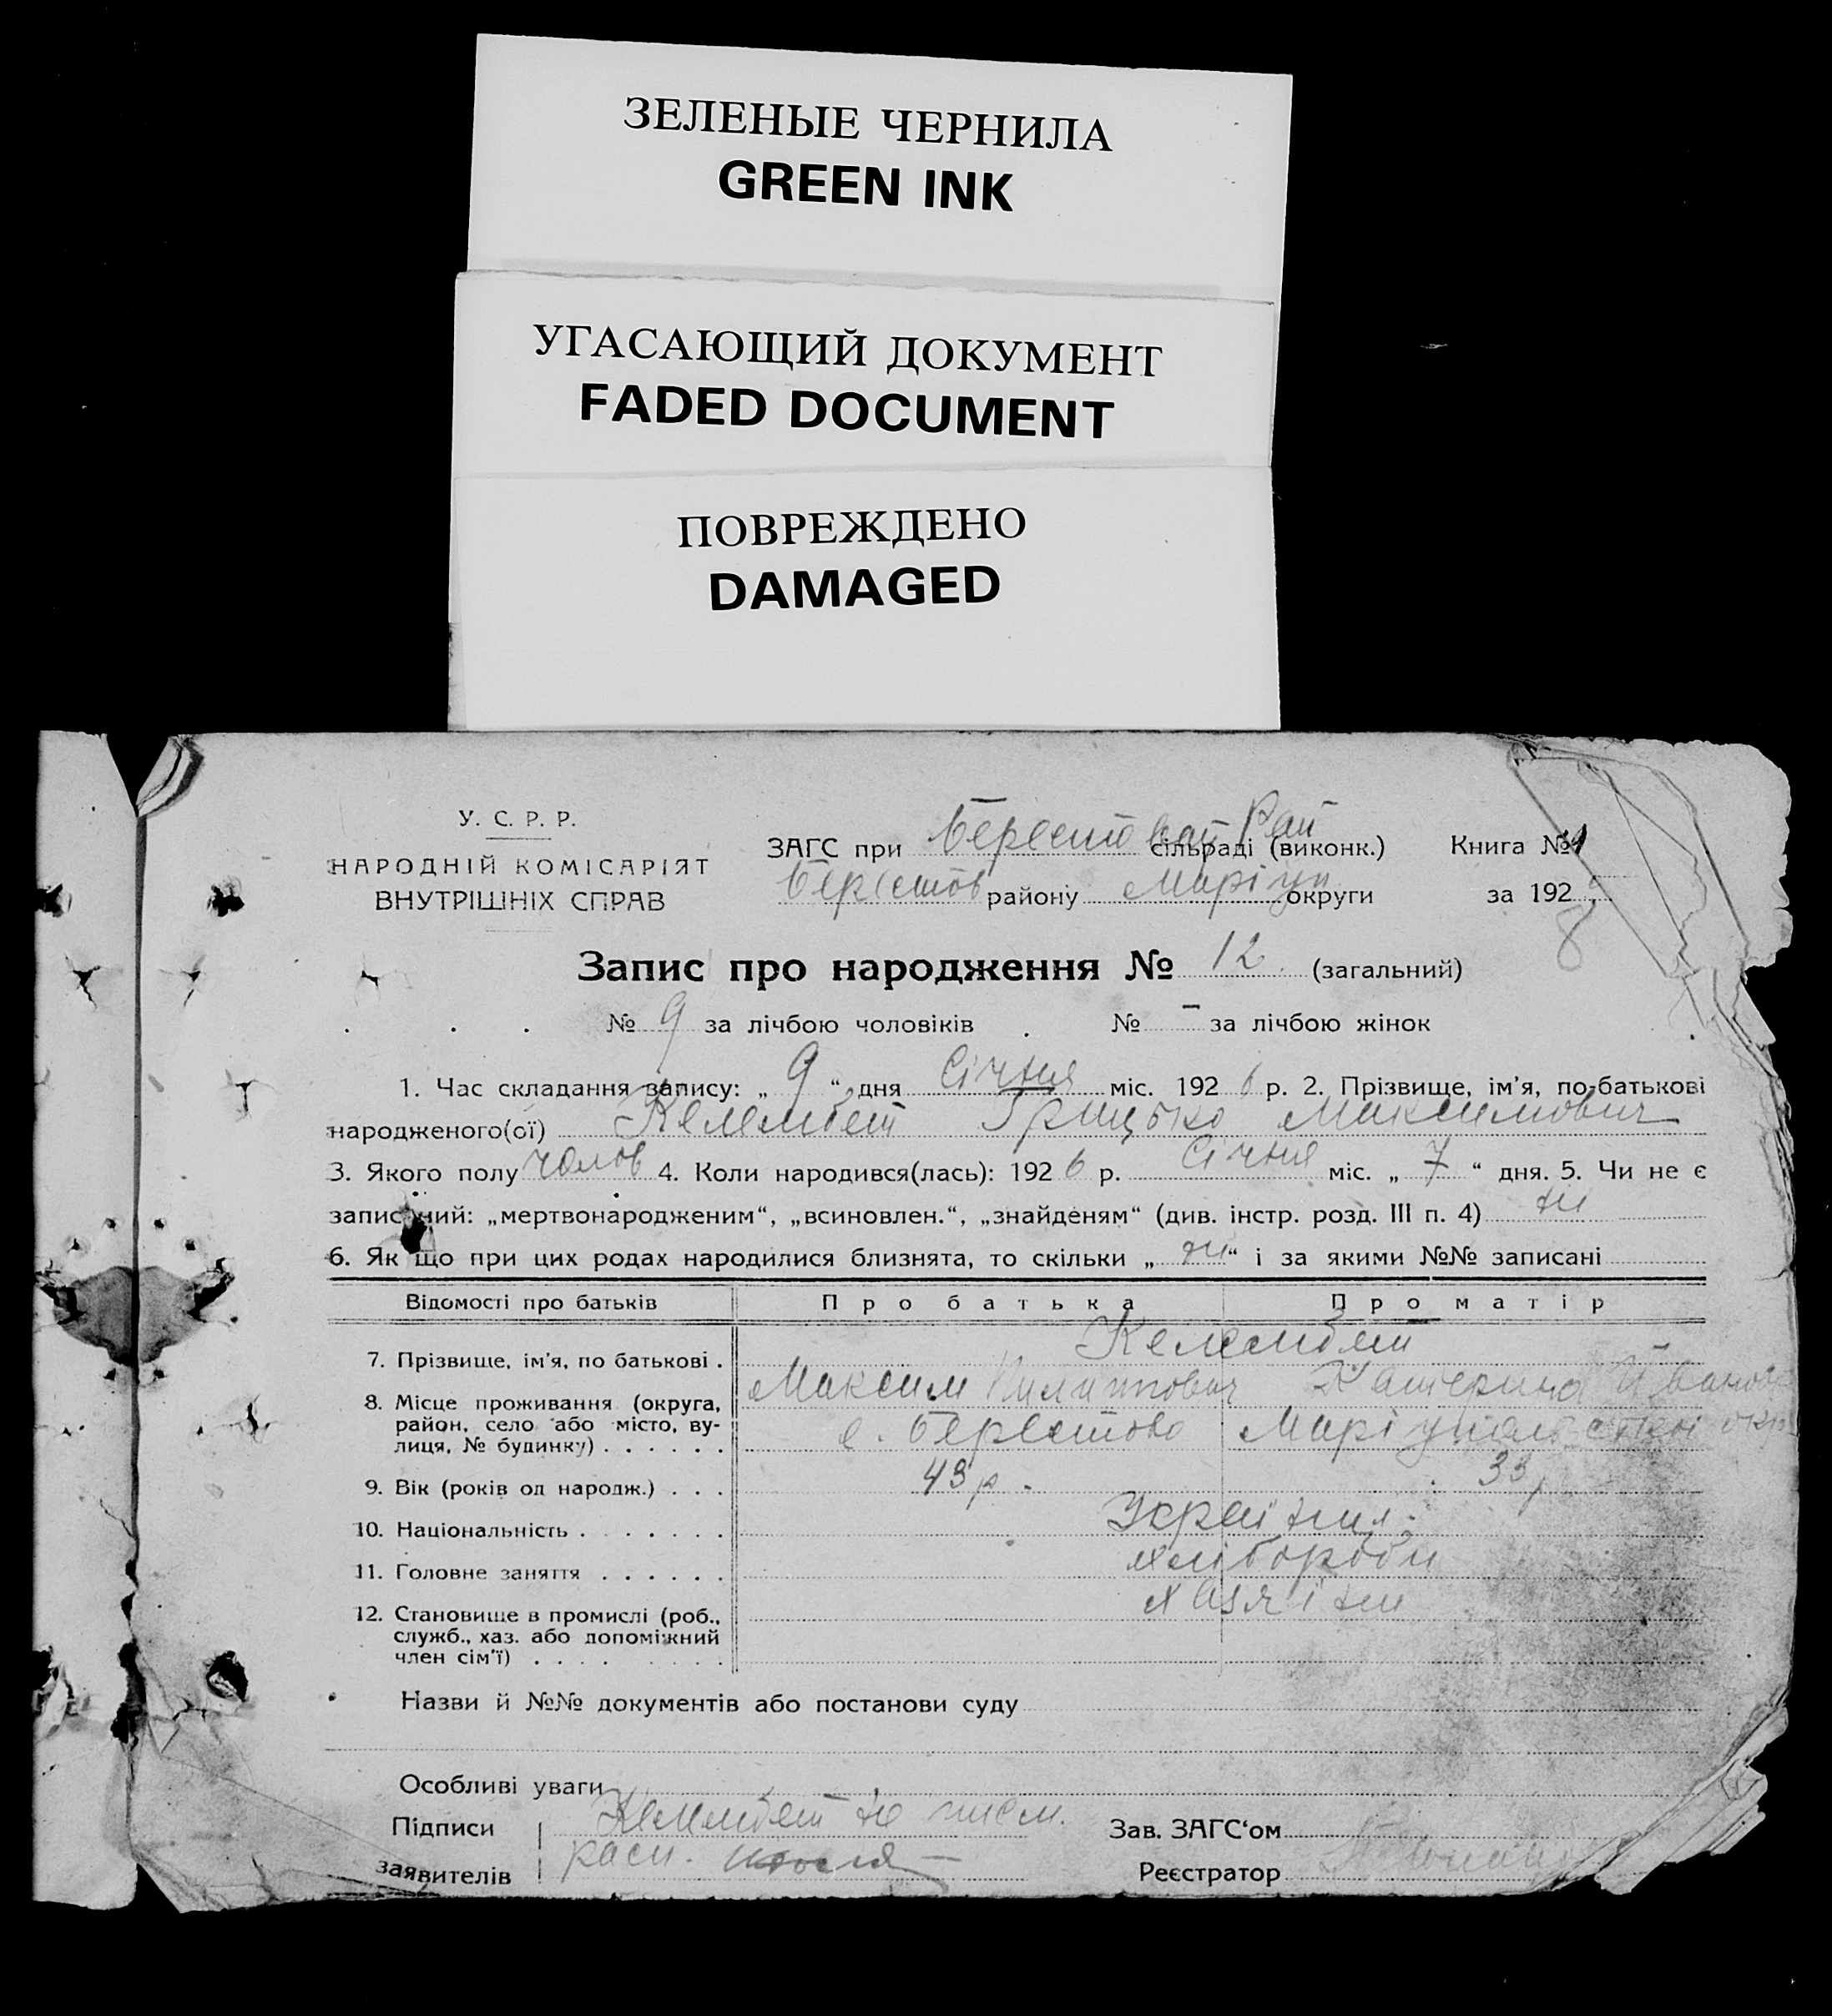 ЗЕЛЕНЫЕ ЧЕРНИЛА
GREEN INK
УГАСАЮЩИЙ ДОКУМЕНТ
FADED DOCUMENT
ПОВРЕЖДЕНО
DAMAGED
У. С. Р. Р.
НАРОДНІЙ КОМІСАРІЯТ
ВНУТРІШНІХ СПРАВ
ЗАГС при Берестов Рай сільраді (виконк.)
Берестов району Маріуп округи
Книга №
за 192
8
Запис про народження № 12 (загальний)
№ 9 за лічбою чоловіків № — за лічбою жінок
1. Час складання запису: „ 9 “ дня Січня міс. 192 6 р. 2. Прізвище, ім’я, по-батькові
народженого(ої) Келембет Грицько Максимович
3. Якого полу чолов 4. Коли народився(лась): 192 6 р. Січня міс. „ 7 “ дня. 5. Чи не є
записаний: „мертвонародженим“, „всиновлен.“, „знайденям“ (див. інстр. розд. III п. 4) ни
6. Як що при цих родах народилися близнята, то скільки „ ни “ і за якими №№ записані
Відомості про батьків Про батька Про матір
7. Прізвище, ім’я, по батькові . Келембет
Максим Пилиппович Катерина Ивановн
8. Місце проживання (округа,
район, село або місто, ву-
лиця, № будинку) . . . . . . с. Берестово Маріупольської окр
9. Вік (років од народж.) . . . 43 р. 33 р
10. Національність . . . . . . . Україн
11. Головне заняття . . . . . . хлібороби
12. Становище в промислі (роб.,
служб., хаз. або допоміжний
член сім’ї) . . . . . . . . хазяїни
Назви й №№ документів або постанови суду
Особливі уваги
Підписи
заявителів
Келембет не писм.
расп.
Зав. ЗАГС‘ом
Реєстратор